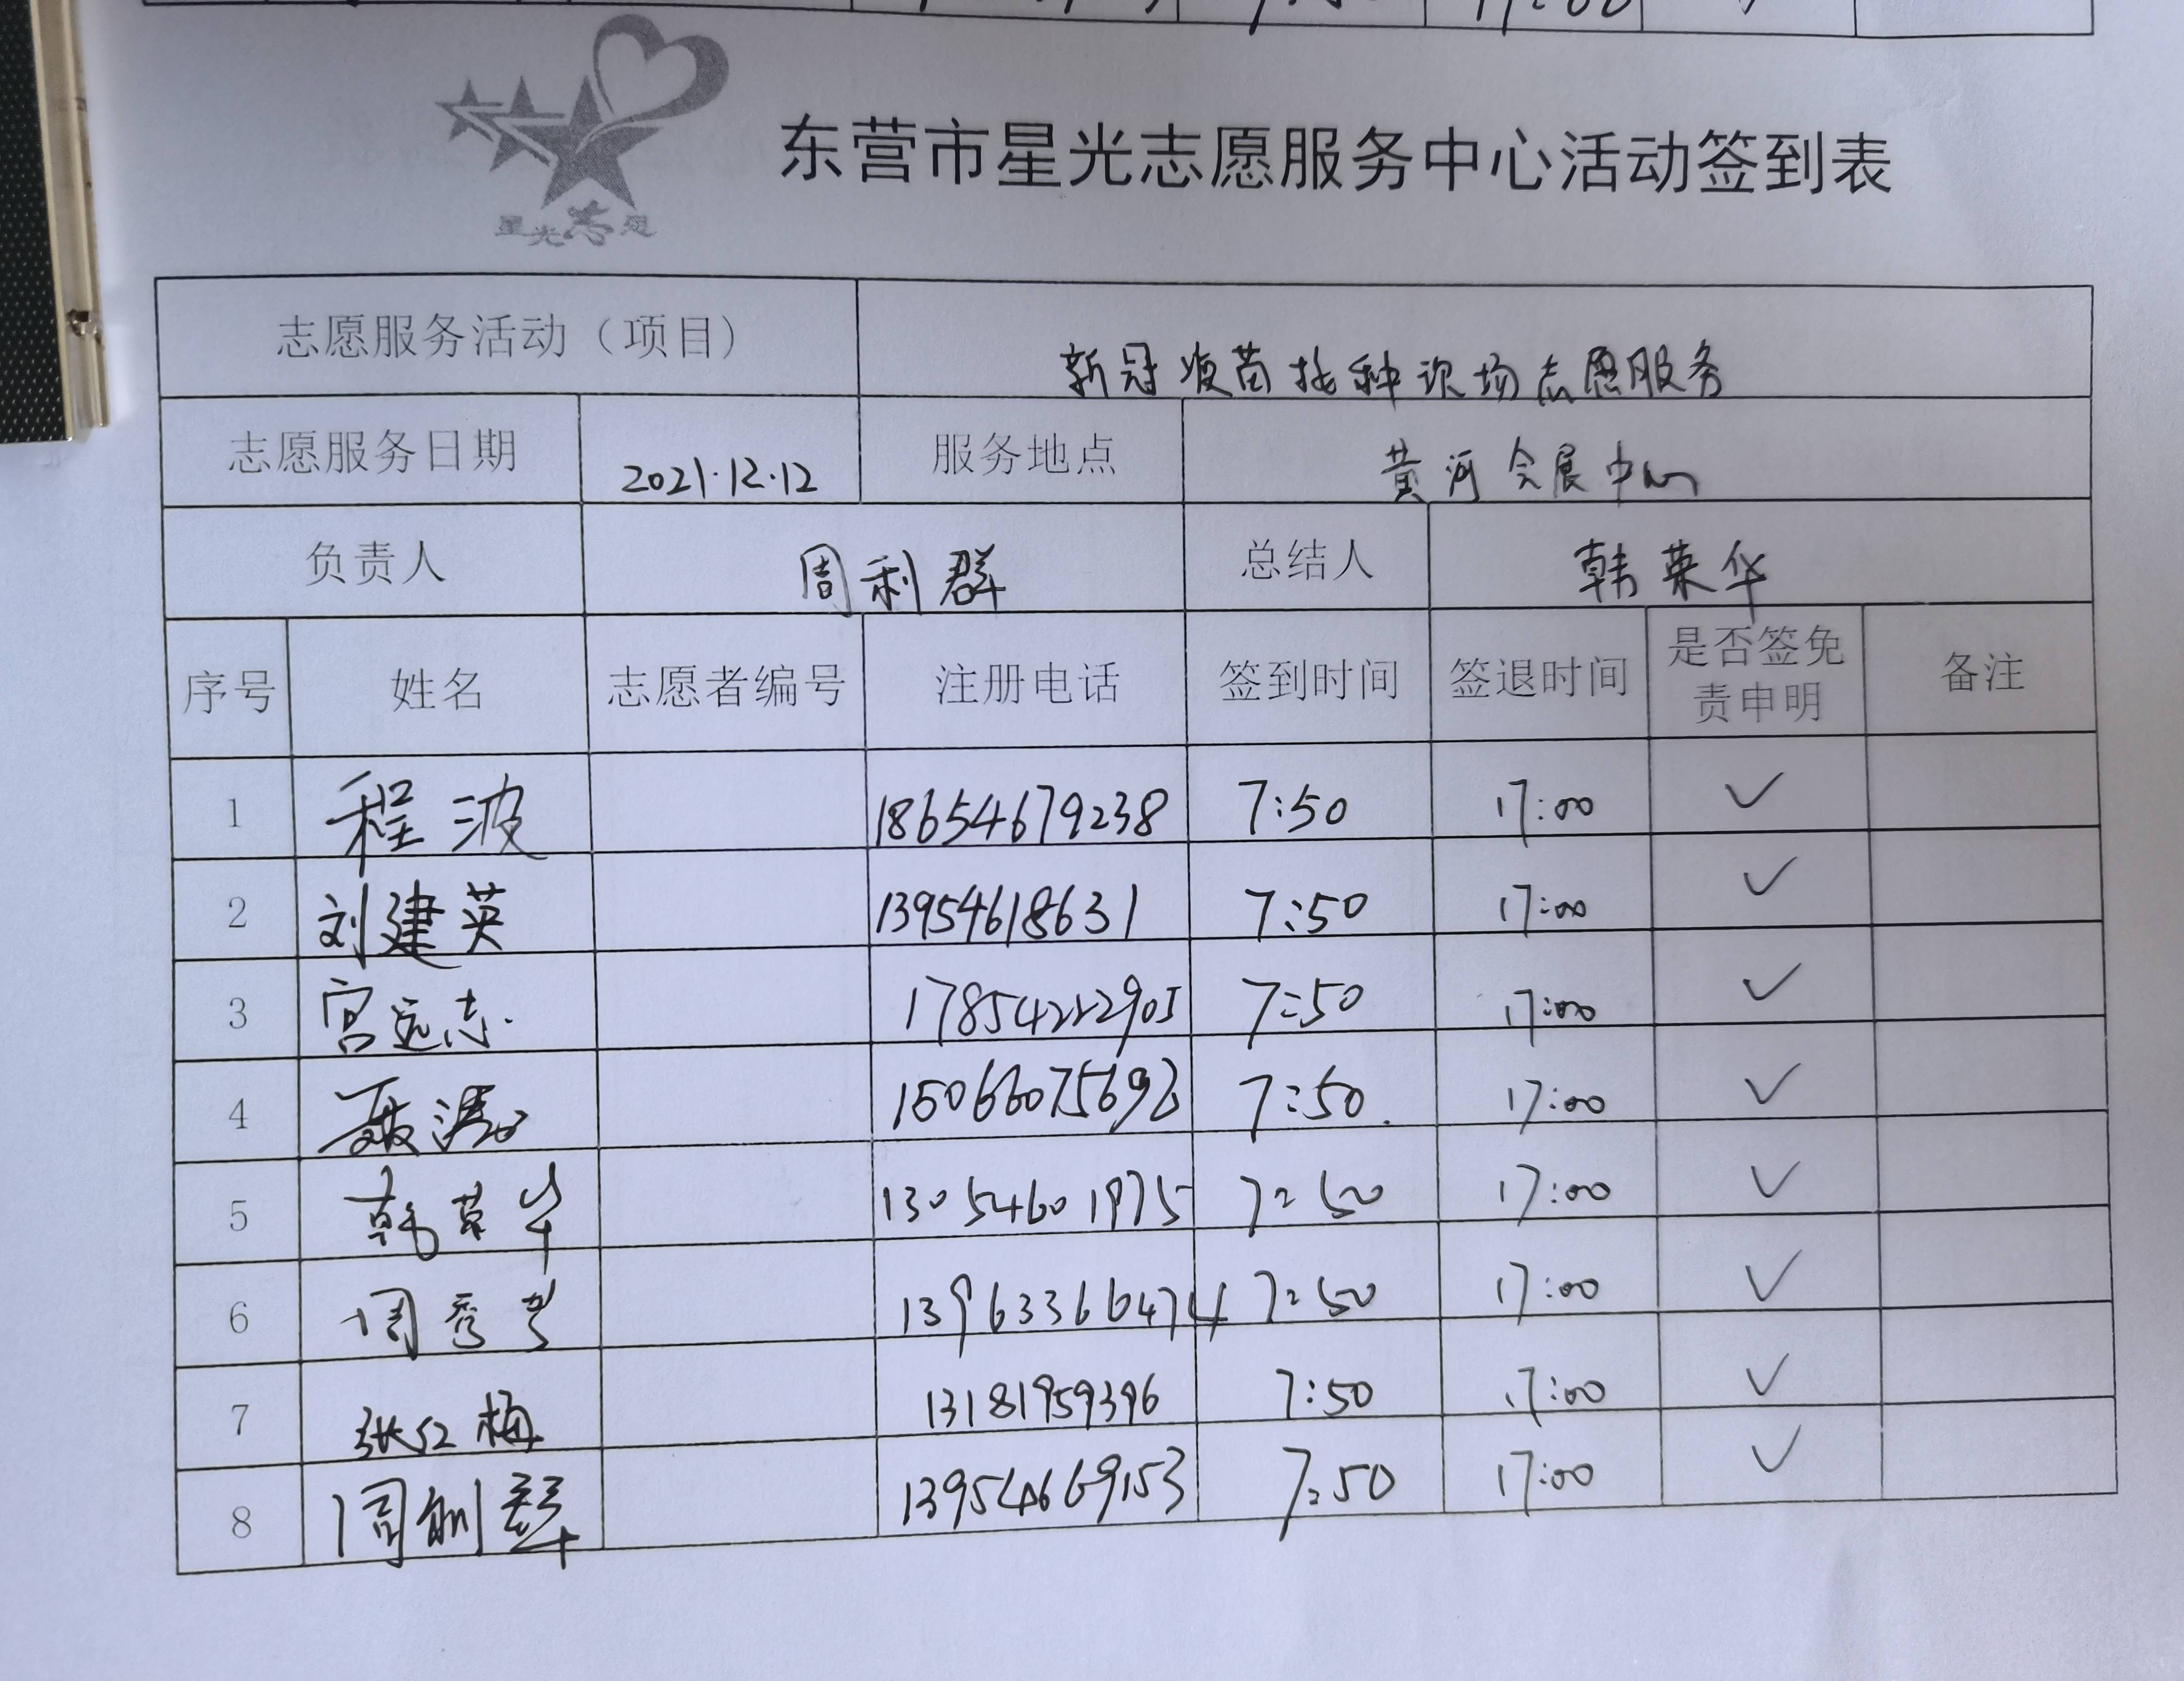 17:00
星光志愿
东营市星光志愿服务中心活动签到表
志愿服务活动（项目） 新冠疫苗接种现场志愿服务
志愿服务日期 2021.12.12 服务地点 黄河会展中心
负责人 周利群 总结人 韩荣华
序号 姓名 志愿者编号 注册电话 签到时间 签退时间 是否签免责申明 备注
1 程波 18654679238 7:50 17:00 ✓
2 刘建英 13954618631 7:50 17:00 ✓
3 宫远志 17854222905 7:50 17:00 ✓
4 7:50 17:00 ✓
5 韩荣华 13054601975 7:50 17:00 ✓
6 周秀 13963366474 7:50 17:00 ✓
7 张红梅 13181959396 7:50 17:00 ✓
8 周 13954669153 7:50 17:00 ✓